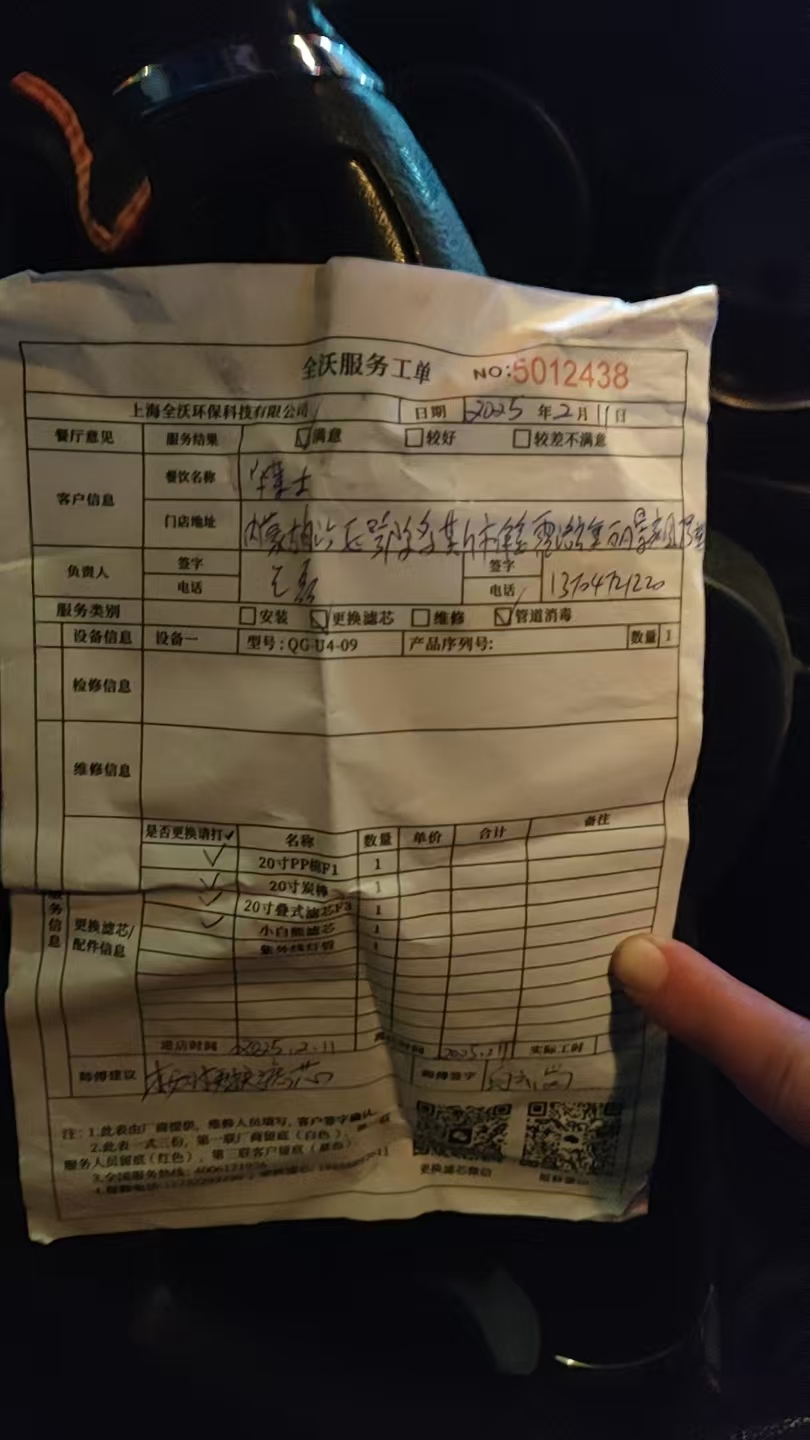 全沃服务工单 NO:5012438
上海全沃环保科技有限公司 日期 2025 年 2 月 11 日
餐厅意见 服务结果 满意 较好 较差不满意
客户信息 餐饮名称 华莱士
门店地址
负责人 签字 签字
电话 电话 13704721220
服务类别 安装 更换滤芯 维修 管道消毒
设备信息 设备一 型号:QG-U4-09 产品序列号: 数量 1
检修信息
维修信息
是否更换请打✓ 名称 数量 单价 合计 备注
✓ 20寸PP棉F1 1
✓ 20寸炭棒 1
✓ 20寸叠式滤芯F3 1
✓ 小白熊滤芯 1
紫外线灯管 1
服务信息 更换滤芯/配件信息
进店时间 2025.2.11 时间 2025.2.11 实际工时
师傅建议 师傅签字
注:1.此表由厂商提供,维修人员填写,客户签字确认
2.此表一式三份,第一联厂商留底(白色)
服务人员留底(红色)、第三联客户留底
3.全国服务热线:
更换滤芯微信